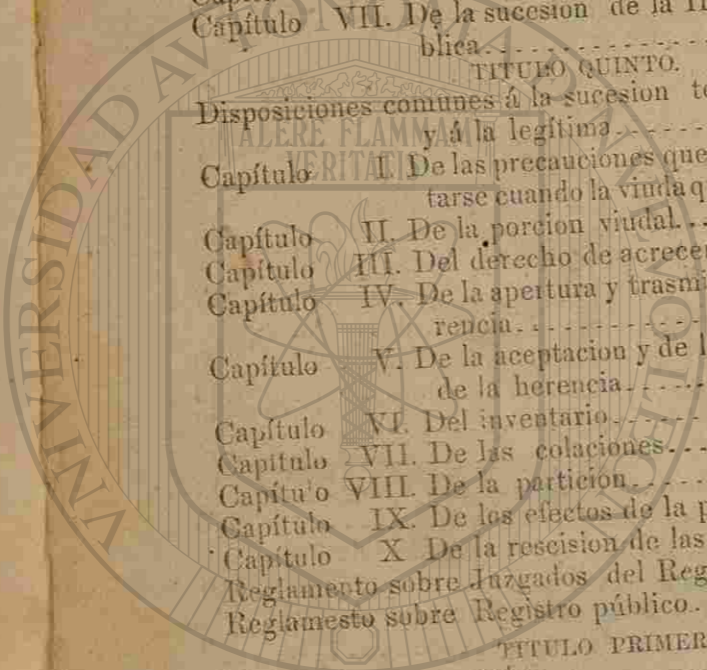 Capítulo VII. De la sucesion de la
blica
TITULO QUINTO.
Disposiciones comunes á la sucesion
y á la legítima
Capítulo I. De las precauciones que
tarse cuando la viuda
Capítulo II. De la porcion viudal
Capítulo III. Del derecho de
Capítulo IV. De la apertura y
rencia
Capítulo V. De la aceptacion y de
de la herencia
Capítulo VI. Del inventario
Capítulo VII. De las colaciones
Capítu'o VIII. De la particion
Capítulo IX. De los efectos de la
Capítulo X De la rescision de las
Reglamento sobre Juzgados del
Reglamesto sobre Registro público
TITULO
ALERE FLAMMAM
VERITATIS